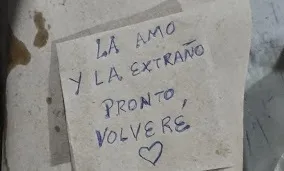 LA AMO
Y LA EXTRAÑO
PRONTO,
VOLVERE